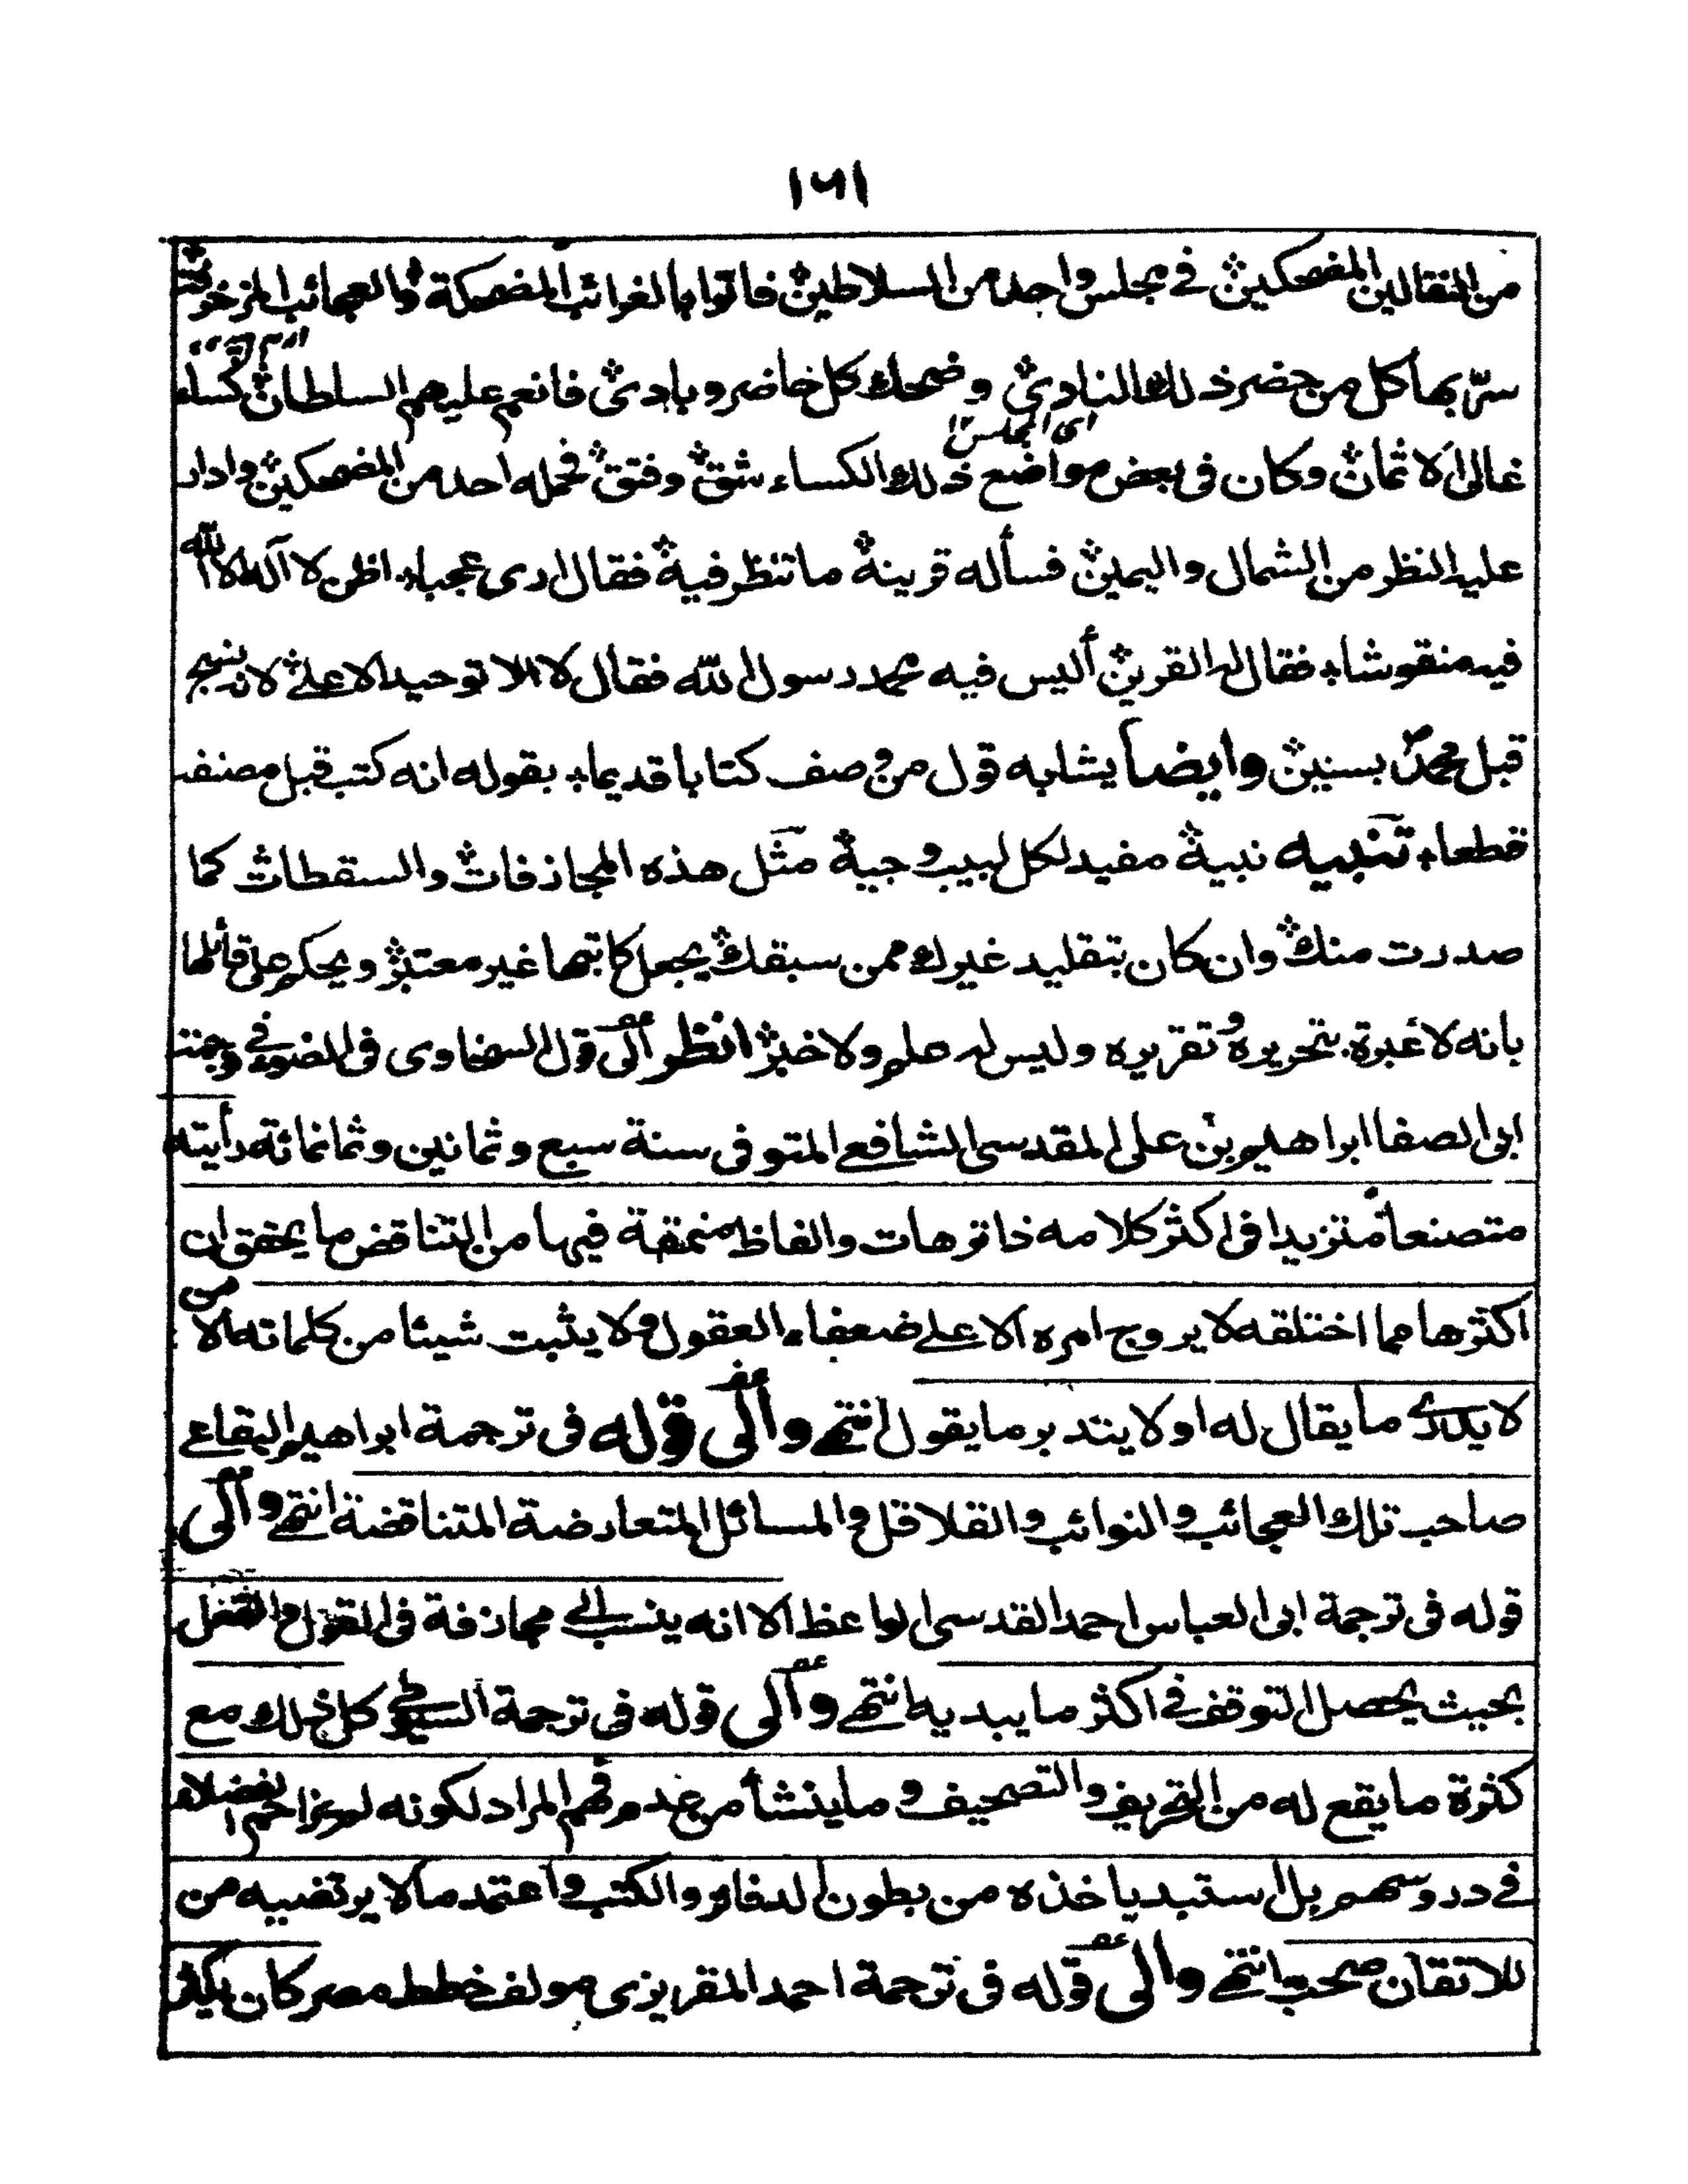 ١٦١
من النقالين المضحكين في مجلس واحد من السلاطين فاتوا بالغرائب المضحكة والعجائب المزخرفة
سرّ بها كل من حضر ذلك النادي وضحك كل حاضر وبادي فانعم عليهم السلطان كساء
اى المجلس
غالى الاثمان وكان فى بعض مواضع ذلك الكساء شق وفتق فحمله احد من المضحكين وادار
عليه النظر من الشمال واليمين فسأله قرينه ما تنظر فيه فقال ارى عجبا اظن لا آله الا الله
فيه منقوشا فقال له القرين أليس فيه محمد رسول الله فقال لا الا توحيد الاعلى لانه نسج
قبل محمد بسنين وايضا يشابه قول من وصف كتابا قديما بقوله انه كتب قبل مصنفه
قطعا تنبيه نبيه مفيد لكل لبيب وجيه مثل هذه المجازفات والسقطات كما
صدرت منك وان كان بتقليد غيرك ممن سبقك يجعل كاتبها غير معتبر ويحكم على قائلها
بانه لا عبرة بتحريره وتقريره وليس له علم ولا خبر انظر الى قول السخاوى فى الضوء فى ترجمة
ابى الصفا ابراهيم بن على المقدسى الشافعى المتوفى سنة سبع وثمانين وثمانمائة رأيته
متصنعا متزيدا فى اكثر كلامه ذا ترهات والفاظ منمقة فيها من التناقض ما يحقق ان
اكثرها مما اختلقه لا يروج امره الا على ضعفاء العقول ولا يثبت شيئا من كلماته الا من
لا يدرى ما يقال له او لا يتدبر ما يقول انتهى والى قوله فى ترجمة ابراهيم البقاعى
صاحب تلك العجائب والنوائب والقلاقل والمسائل المتعارضة المتناقضة انتهى والى
قوله فى ترجمة ابى العباس احمد القدسى الواعظ الا انه ينسب الى مجازفة فى القول والنقل
بحيث يحصل التوقف فى اكثر ما يبديه انتهى والى قوله فى ترجمة السيوطى كل ذلك مع
كثرة ما يقع له من التحريف والتصحيف وما ينشأ من عدم فهم المراد لكونه لم يزاحم الفضلاء
فى دروسهم بل استبد ياخذه من بطون الدفاتر والكتب واعتمد ما لا يرتضيه من
للاتقان صحب انتهى والى قوله فى ترجمة احمد المقريزى مولف خطط مصر كان يكثر